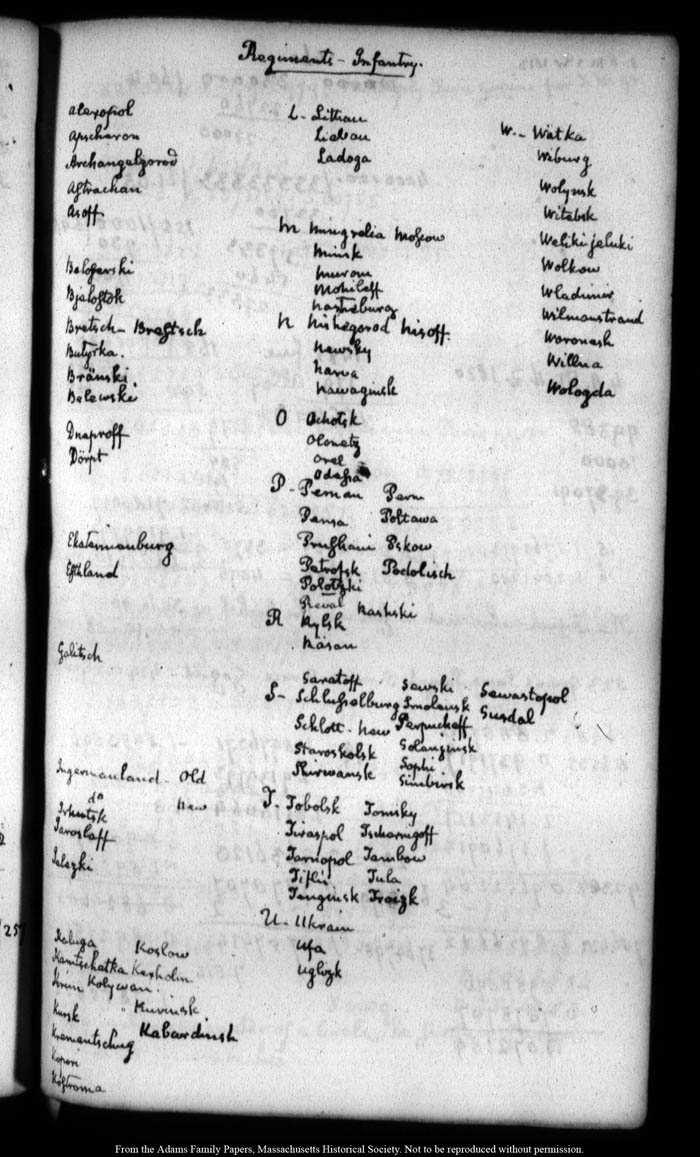 Regiments - Infantry.
Alexopol
Apscheron
Archangelgorod
Astrachan
Asoff
Beloserski
Bjalostok
Bretsch - Brestsch
Butyrka.
Bränski
Belewski
Dnaproff
Dörpt
Ekaterinenburg
Esthland
Galitsch
Ingermanland - Old
do New
Irkutsk
Jaroslaff
Jelezki
Kaluga Koslow
Kamtschatka Kexholm
Krim Kolywan.
Kursk Kurinsk
Krementschug Kabardinsk
Kopori
Kostroma
L - Lithau
Liebau
Ladoga
M Mingrelia Moscow
Minsk
Murom
Mohileff
Nascheburg
N Nishegorod Nisoff.
Newsky
Narva
Nawaginsk
O Ochotsk
Olonetz
Orel
Odessa
P - Pernau Perm
Pensa Poltawa
Prushani Pskow
Petrofsk Podolisch
Polotzki
Reval Rashski
R Rylsk
Räsan
Saratoff Sewski Sewastopol
S - Schlusselburg Smolensk Susdal
Schlott - New Serpucheff
Starooskolsk Solanginsk
Shirwansk Sophi
Simbirsk
T - Tobolsk Tomsky
Tiraspol Tschernigoff
Tarnopol Tambow
Tiflis Tula
Tenginsk Troizk
U - Ukrain
Ufa
Uglizk
W - Watka
Wiburg
Wolynsk
Witebsk
Welikijeluki
Wolkow
Wladimir
Wilmanstrand
Woronesh
Willna
Wologda
257
From the Adams Family Papers, Massachusetts Historical Society. Not to be reproduced without permission.